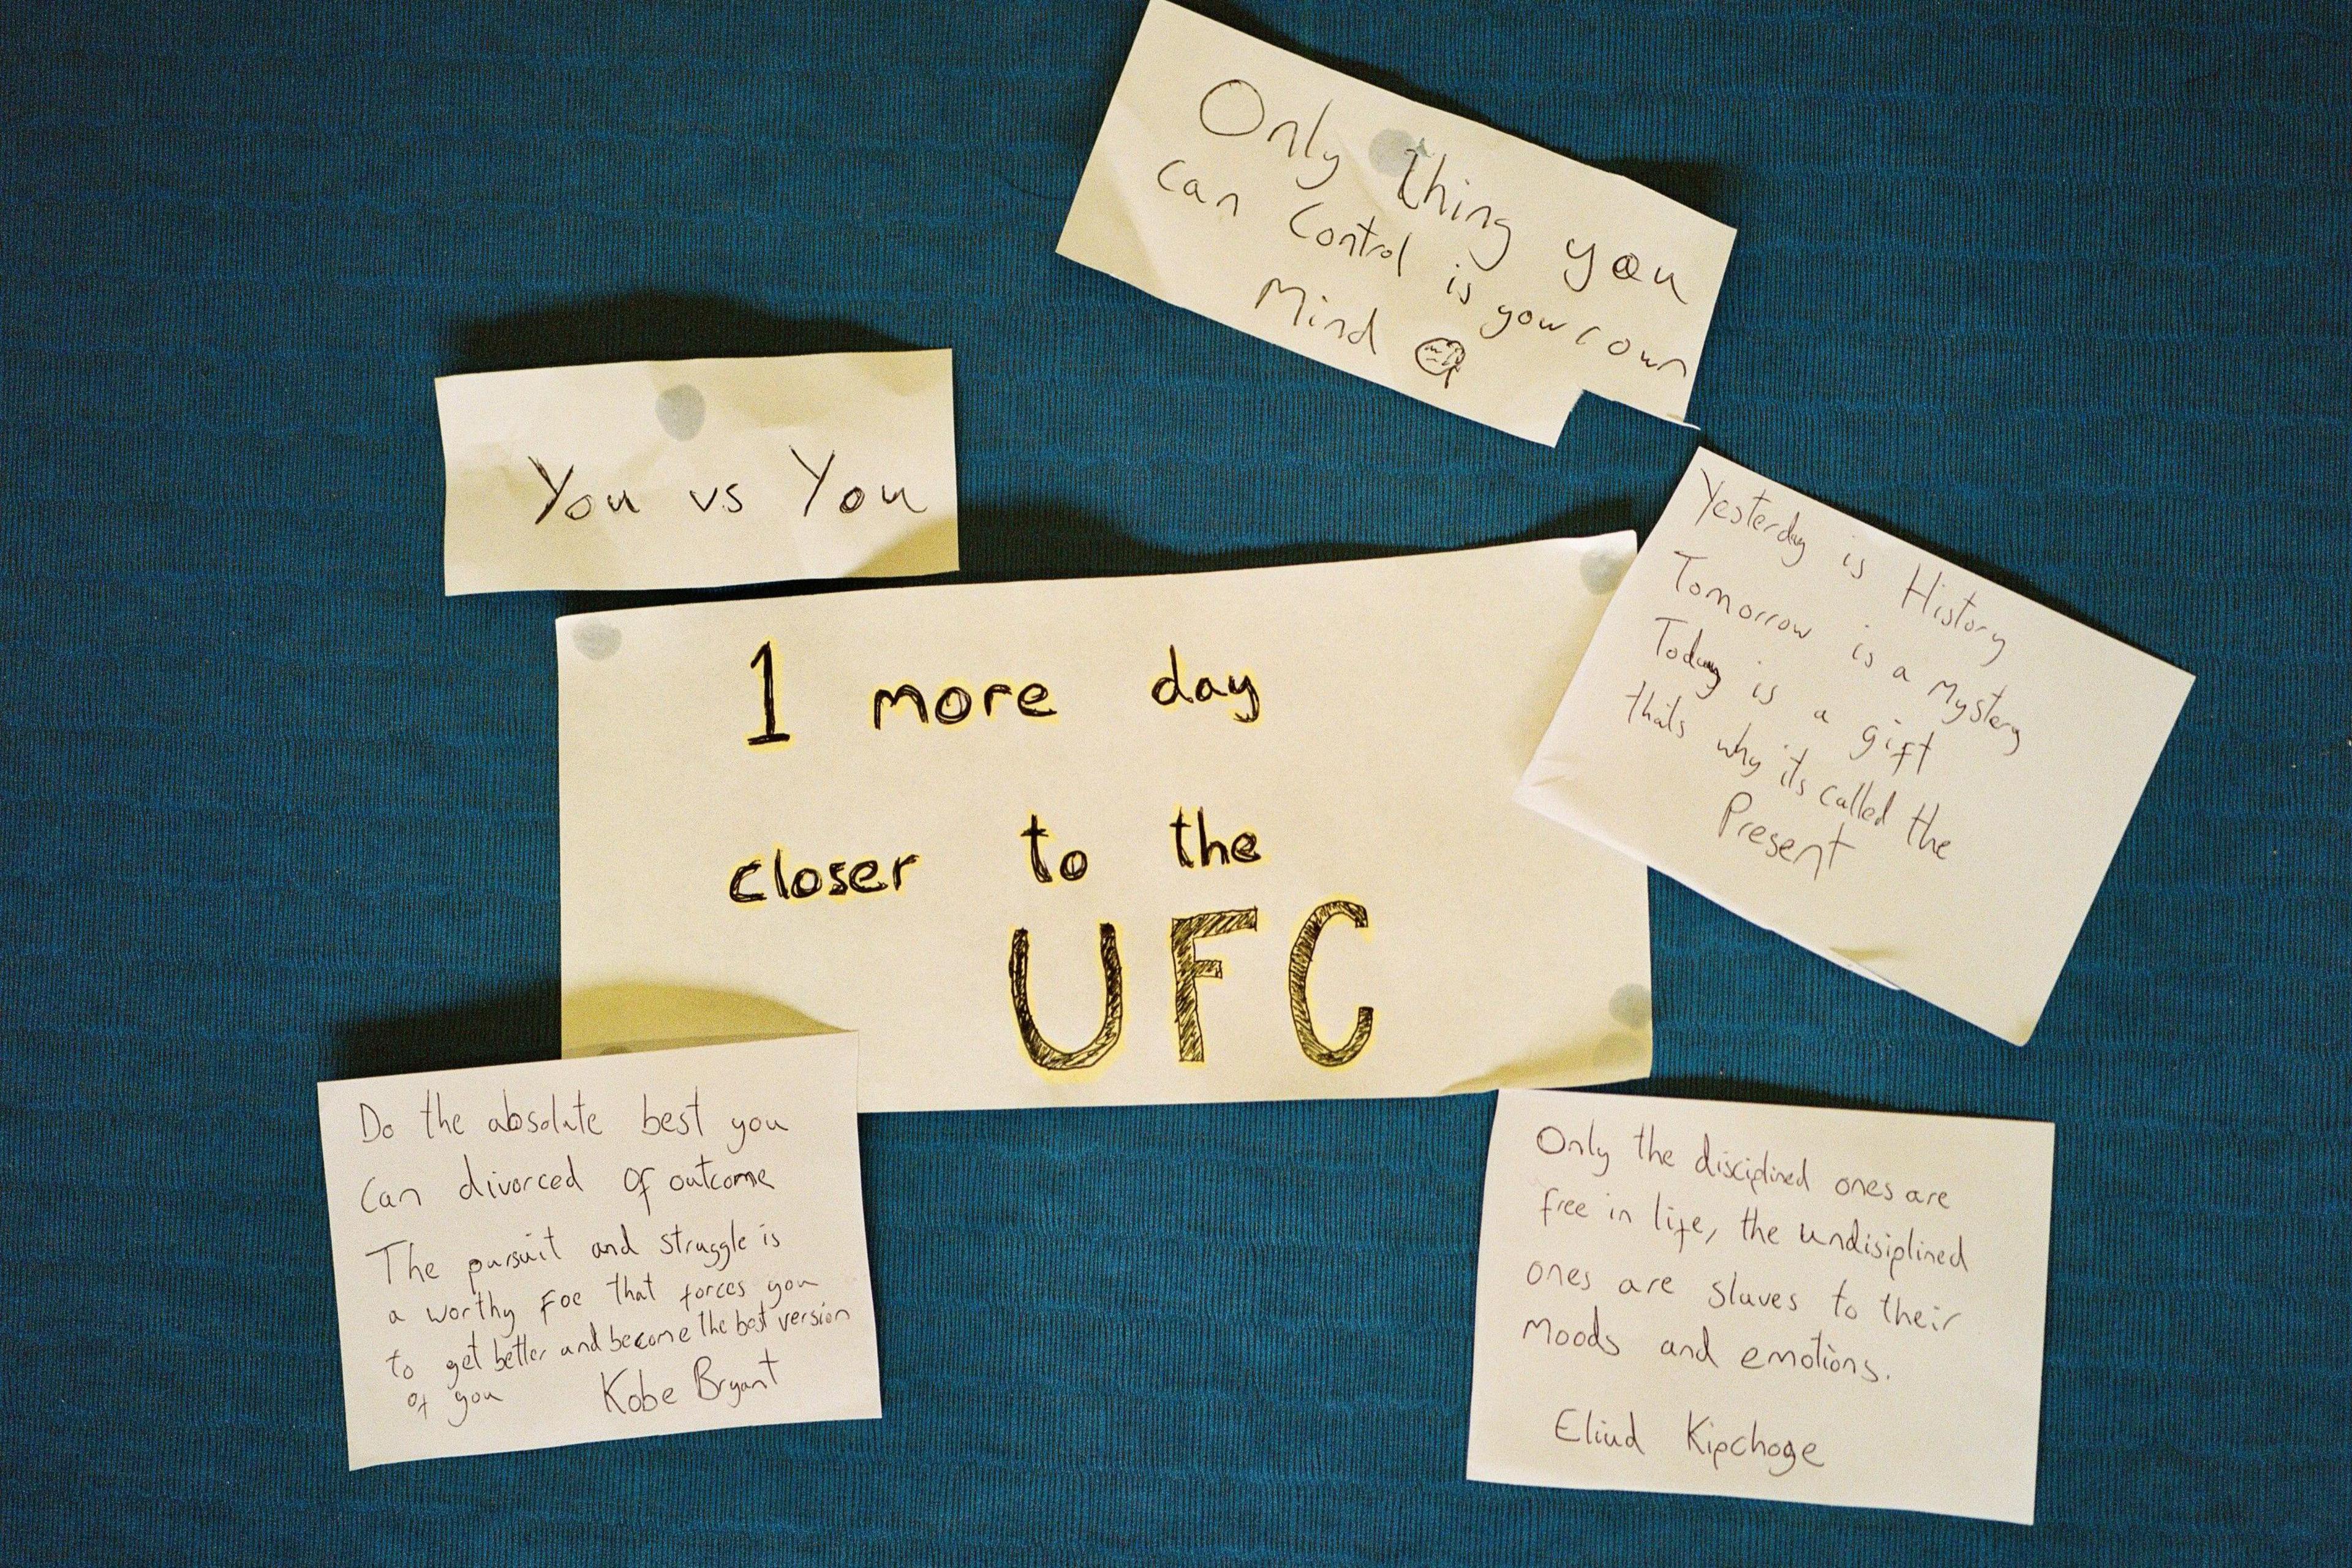 Only thing you
can control is your own
Mind
You vs You
1 more day
closer to the
UFC
Yesterday is History
Tomorrow is a mystery
Today is a gift
thats why its called the
Present
Do the absolute best you
can divorced of outcome
The pursuit and struggle is
a worthy foe that forces you
to get better and become the best version
of you Kobe Bryant
Only the disciplined ones are
free in life, the undisiplined
ones are slaves to their
moods and emotions.
Eliud Kipchoge